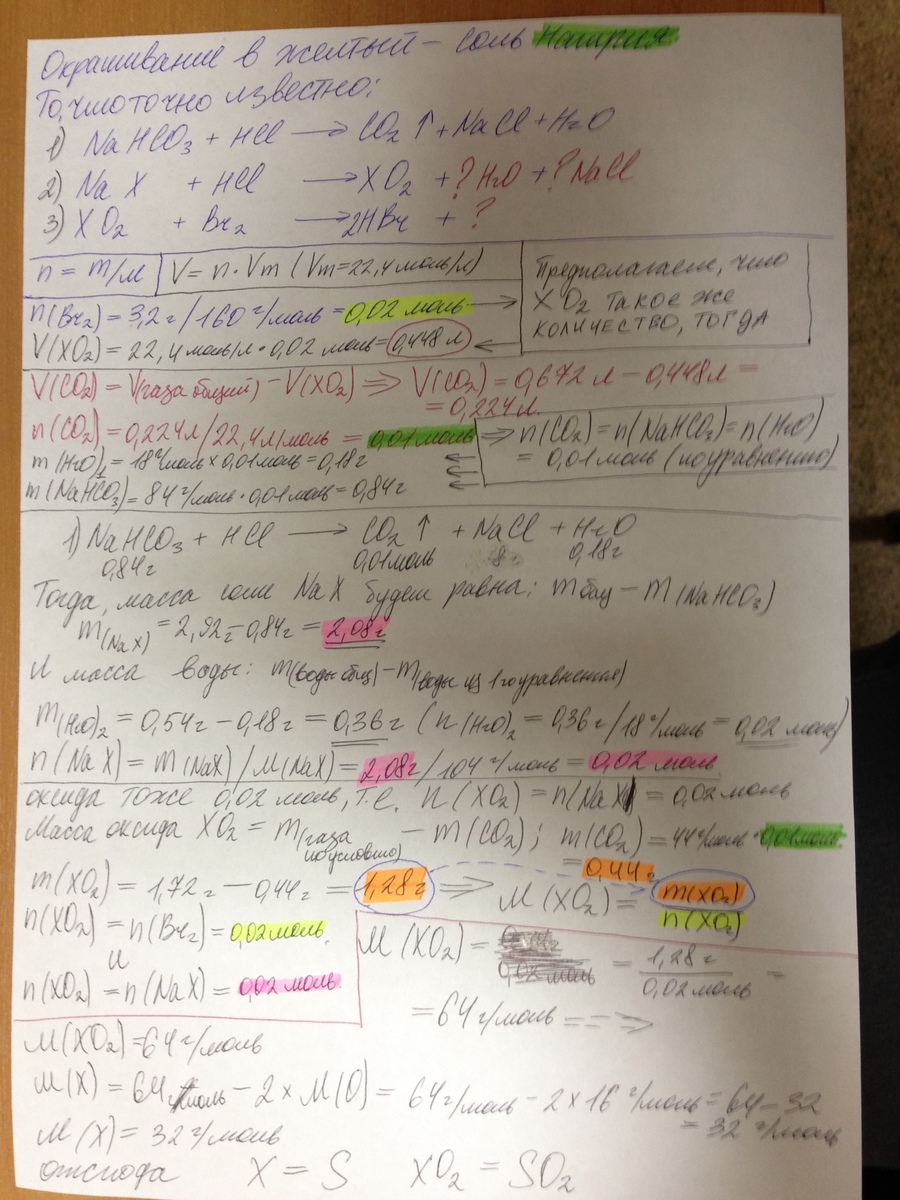 Окрашивание в желтый – соль Натрия
То, что точно известно:
1) NaHCO₃ + HCl → CO₂↑ + NaCl + H₂O
2) Na X + HCl → XO₂ + ? H₂O + ? NaCl
3) XO₂ + Br₂ → 2HBr + ?
n = m/M
V = n · Vm (Vm = 22,4 моль/л)
Предполагаем, что
XO₂ такое же
количество, тогда
n(Br₂) = 3,2 г / 160 г/моль = 0,02 моль
V(XO₂) = 22,4 моль/л · 0,02 моль = 0,448 л
V(CO₂) = V(газа общий) – V(XO₂) ⇒ V(CO₂) = 0,672 л – 0,448 л =
= 0,224 л.
n(CO₂) = 0,224 л / 22,4 л/моль = 0,01 моль ⇒ n(CO₂) = n(NaHCO₃) = n(H₂O)
= 0,01 моль (по уравнению)
m(H₂O)₁ = 18 г/моль × 0,01 моль = 0,18 г
m(NaHCO₃) = 84 г/моль · 0,01 моль = 0,84 г
1) NaHCO₃ + HCl → CO₂↑ + NaCl + H₂O
0,84 г 0,01 моль 0,18 г
Тогда, масса соли NaX будет равна: m общ – m(NaHCO₃)
m(NaX) = 2,92 г – 0,84 г = 2,08 г
И масса воды: m(воды общ) – m(воды из 1го уравнения)
m(H₂O)₂ = 0,54 г – 0,18 г = 0,36 г (n(H₂O)₂ = 0,36 г / 18 г/моль = 0,02 моль)
n(NaX) = m(NaX) / M(NaX) = 2,08 г / 104 г/моль = 0,02 моль
оксида тоже 0,02 моль, т.е. n(XO₂) = n(NaX) = 0,02 моль
Масса оксида XO₂ = m(газа по условию) – m(CO₂); m(CO₂) = 44 г/моль · 0,01 моль
= 0,44 г
m(XO₂) = 1,72 г – 0,44 г = 1,28 г ⇒ M(XO₂) = m(XO₂) / n(XO₂)
n(XO₂) = n(Br₂) = 0,02 моль
и
n(XO₂) = n(NaX) = 0,02 моль
M(XO₂) = = 1,28 г / 0,02 моль =
= 64 г/моль ⇒
M(XO₂) = 64 г/моль
M(X) = 64 г/моль – 2 × M(O) = 64 г/моль – 2 × 16 г/моль = 64 – 32
= 32 г/моль
M(X) = 32 г/моль
отсюда X = S XO₂ = SO₂